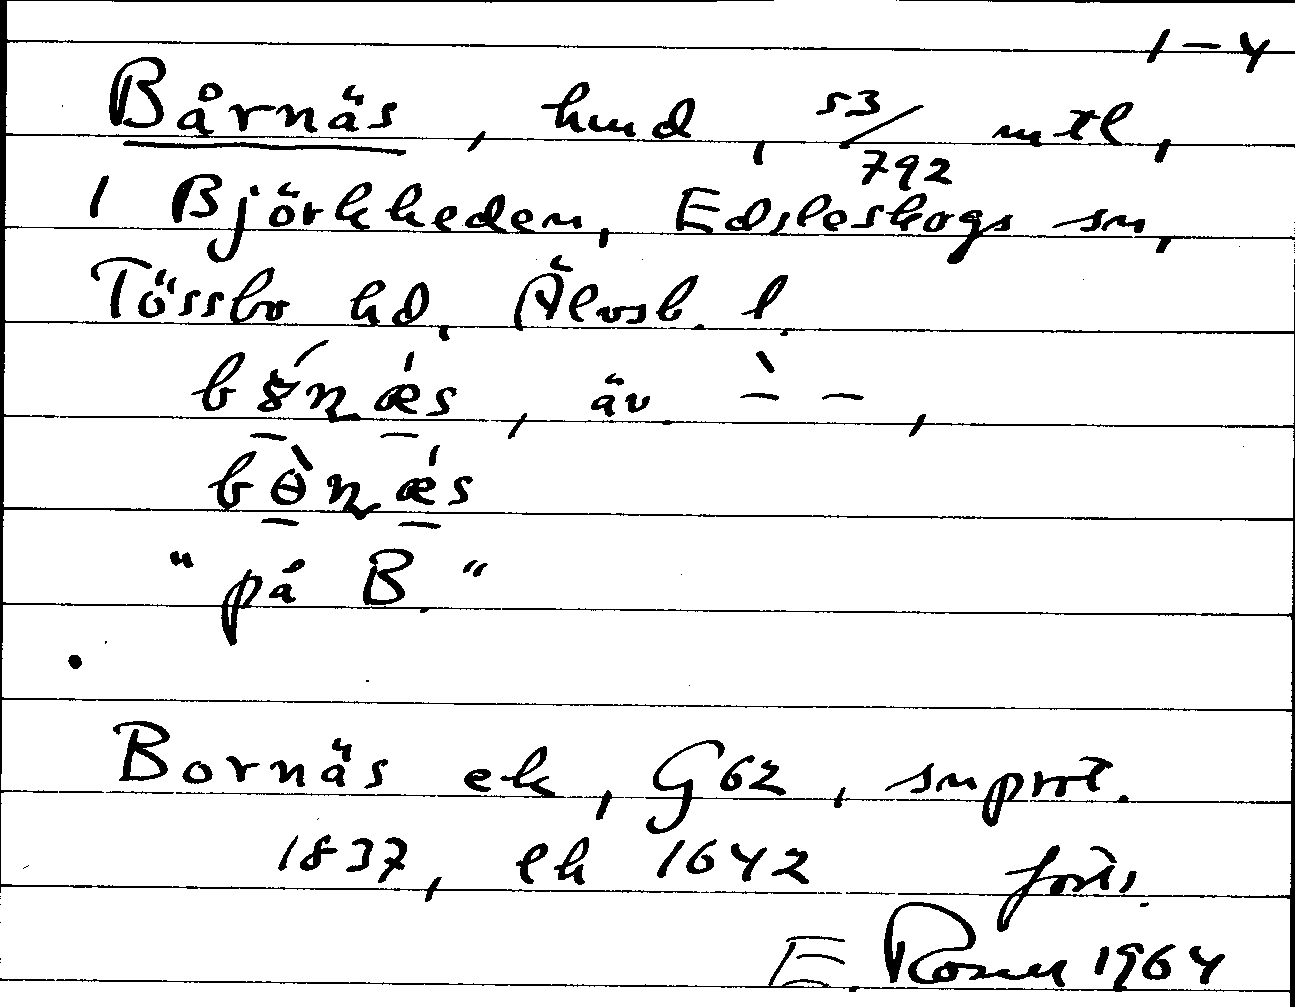 1-4
Bårnäs, hmd, 53/792 mtl,
1 Björkheden, Edsleskogs sn,
Tössbo hd, Älvsb. l.
även
"på B."
Bornäs ek, G62, snprot.
1837, ek 1642 forts.
E. Rosell 1964